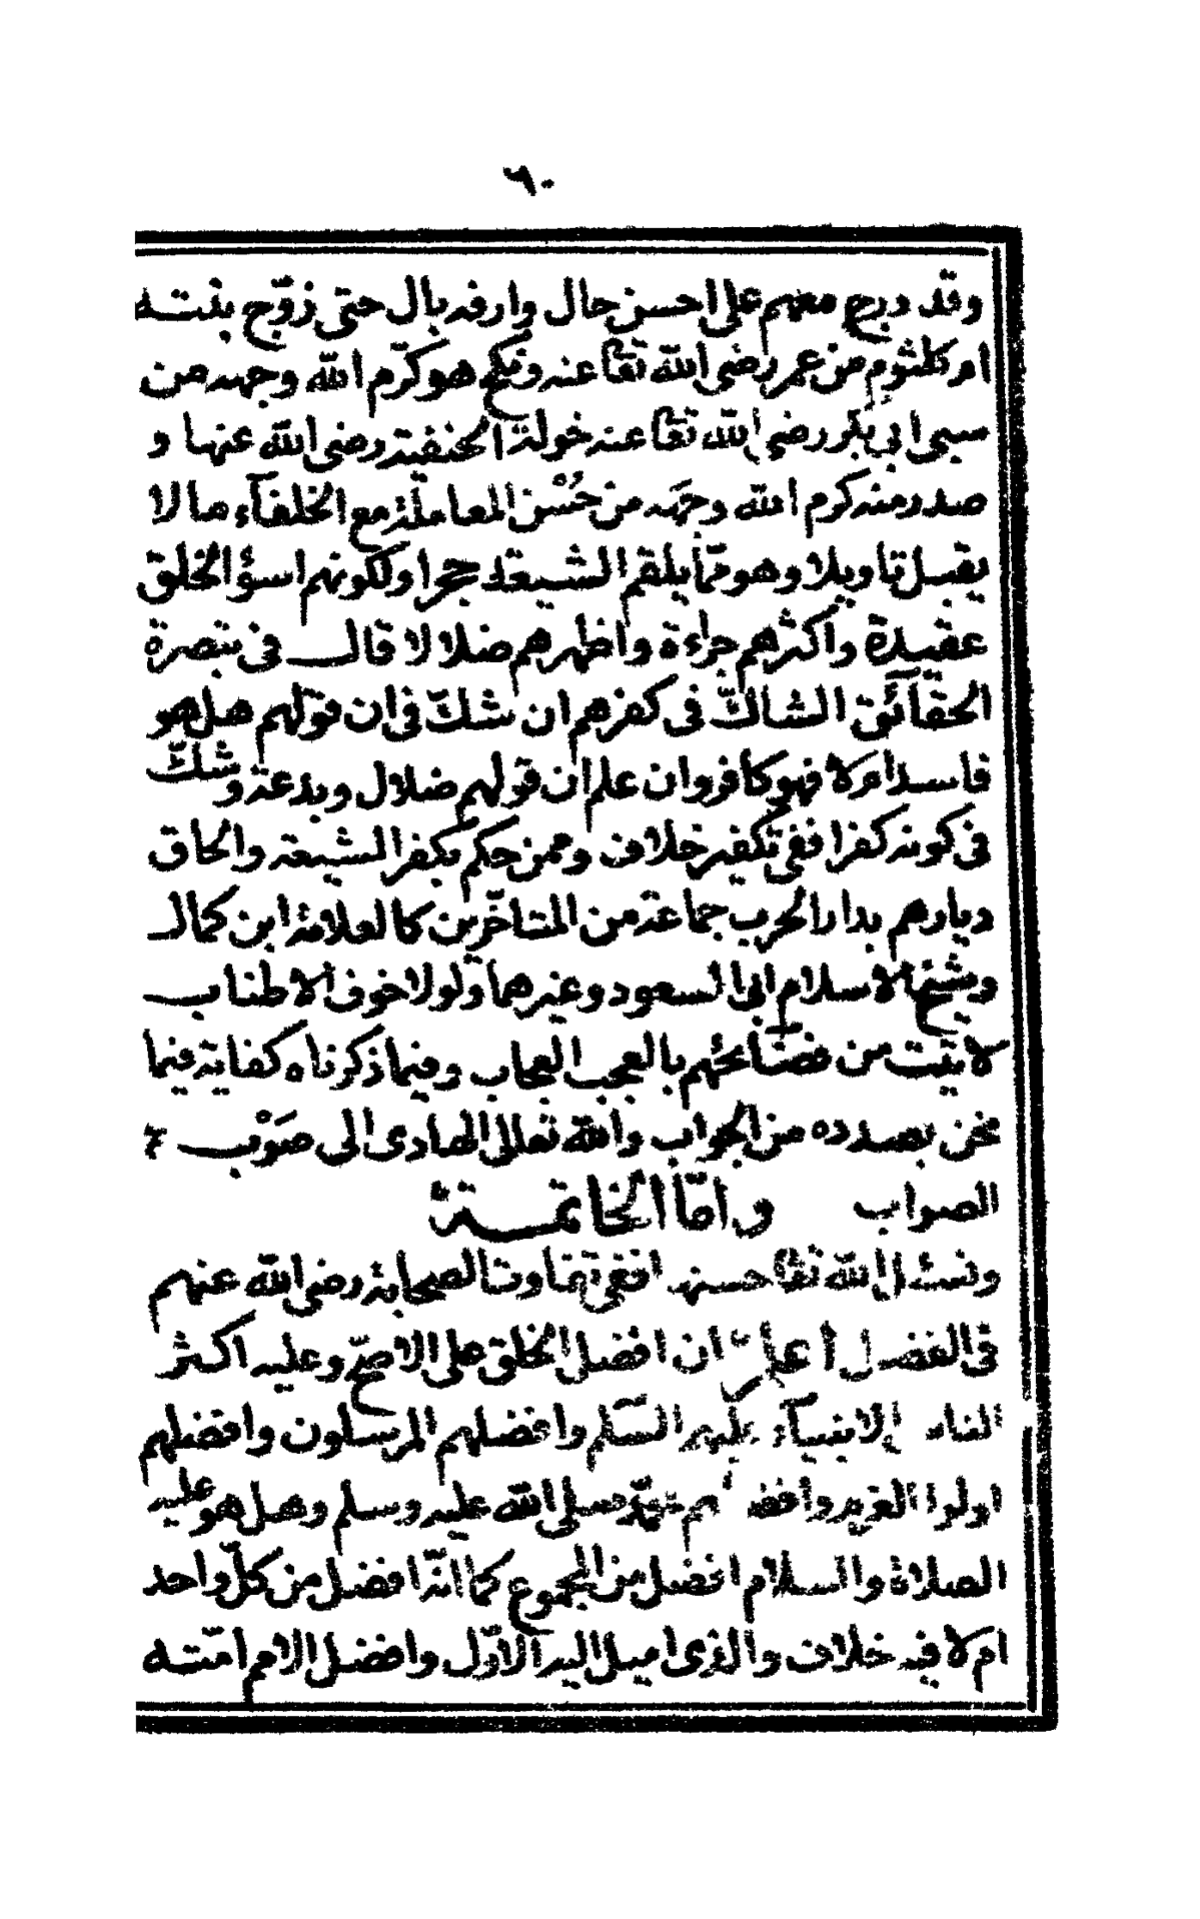 ٦٠
وقد درج معهم على احسن حال وارفه بال حتى زوّج بنته
ام كلثوم من عمر رضى الله تعا عنه ونكح هو كرّم الله وجهه من
سبى ابى بكر رضى الله تعا عنه خولة الحنفية رضى الله عنها و
صدر منه كرم الله وجهه من حُسْن المعاملة مع الخلفآء ما لا
يقبل تاويلا وهو ممّا يلقم الشيعة حجرا ولكونهم اسؤ الخلق
عقيدة واكثرهم جراءة واظهرهم ضلالا قال فى تبصرة
الحقآئق الشاكّ فى كفرهم ان شكّ فى ان قولهم هل هو
فاسد ام لا فهو كافر وان علم ان قولهم ضلال وبدعة وشكّ
فى كونه كفرا ففى تكفيره خلاف وممن حكم بكفر الشيعة والحاق
ديارهم بدار الحرب جماعة من المتاخّرين كالعلامة ابن كمال
وشيخ الاسلام ابى السعود وغيرهما ولولا خوف الاطناب
لاتيت من فضآئحهم بالعجب العجاب وفيما ذكرناه كفاية فيما
نحن بصدده من الجواب والله تعالى الهادى الى صَوْب
الصواب وامّا الخاتمة
ونسئل الله تعا حسنها ففى تفاوت الصحابة رضى الله عنهم
فى الفضل اعلم ان افضل الخلق على الاصحّ وعليه اكثر
الناس الانبيآء عليهم السّلم وافضلهم المرسلون وافضلهم
اولوا العزم وافضلهم محمّد صلى الله عليه وسلم وهل هو عليه
الصلاة والسلام افضل من المجموع كما انّه افضل من كلّ واحد
ام لا فيه خلاف والذى اميل اليه الاوّل وافضل الامم امّته